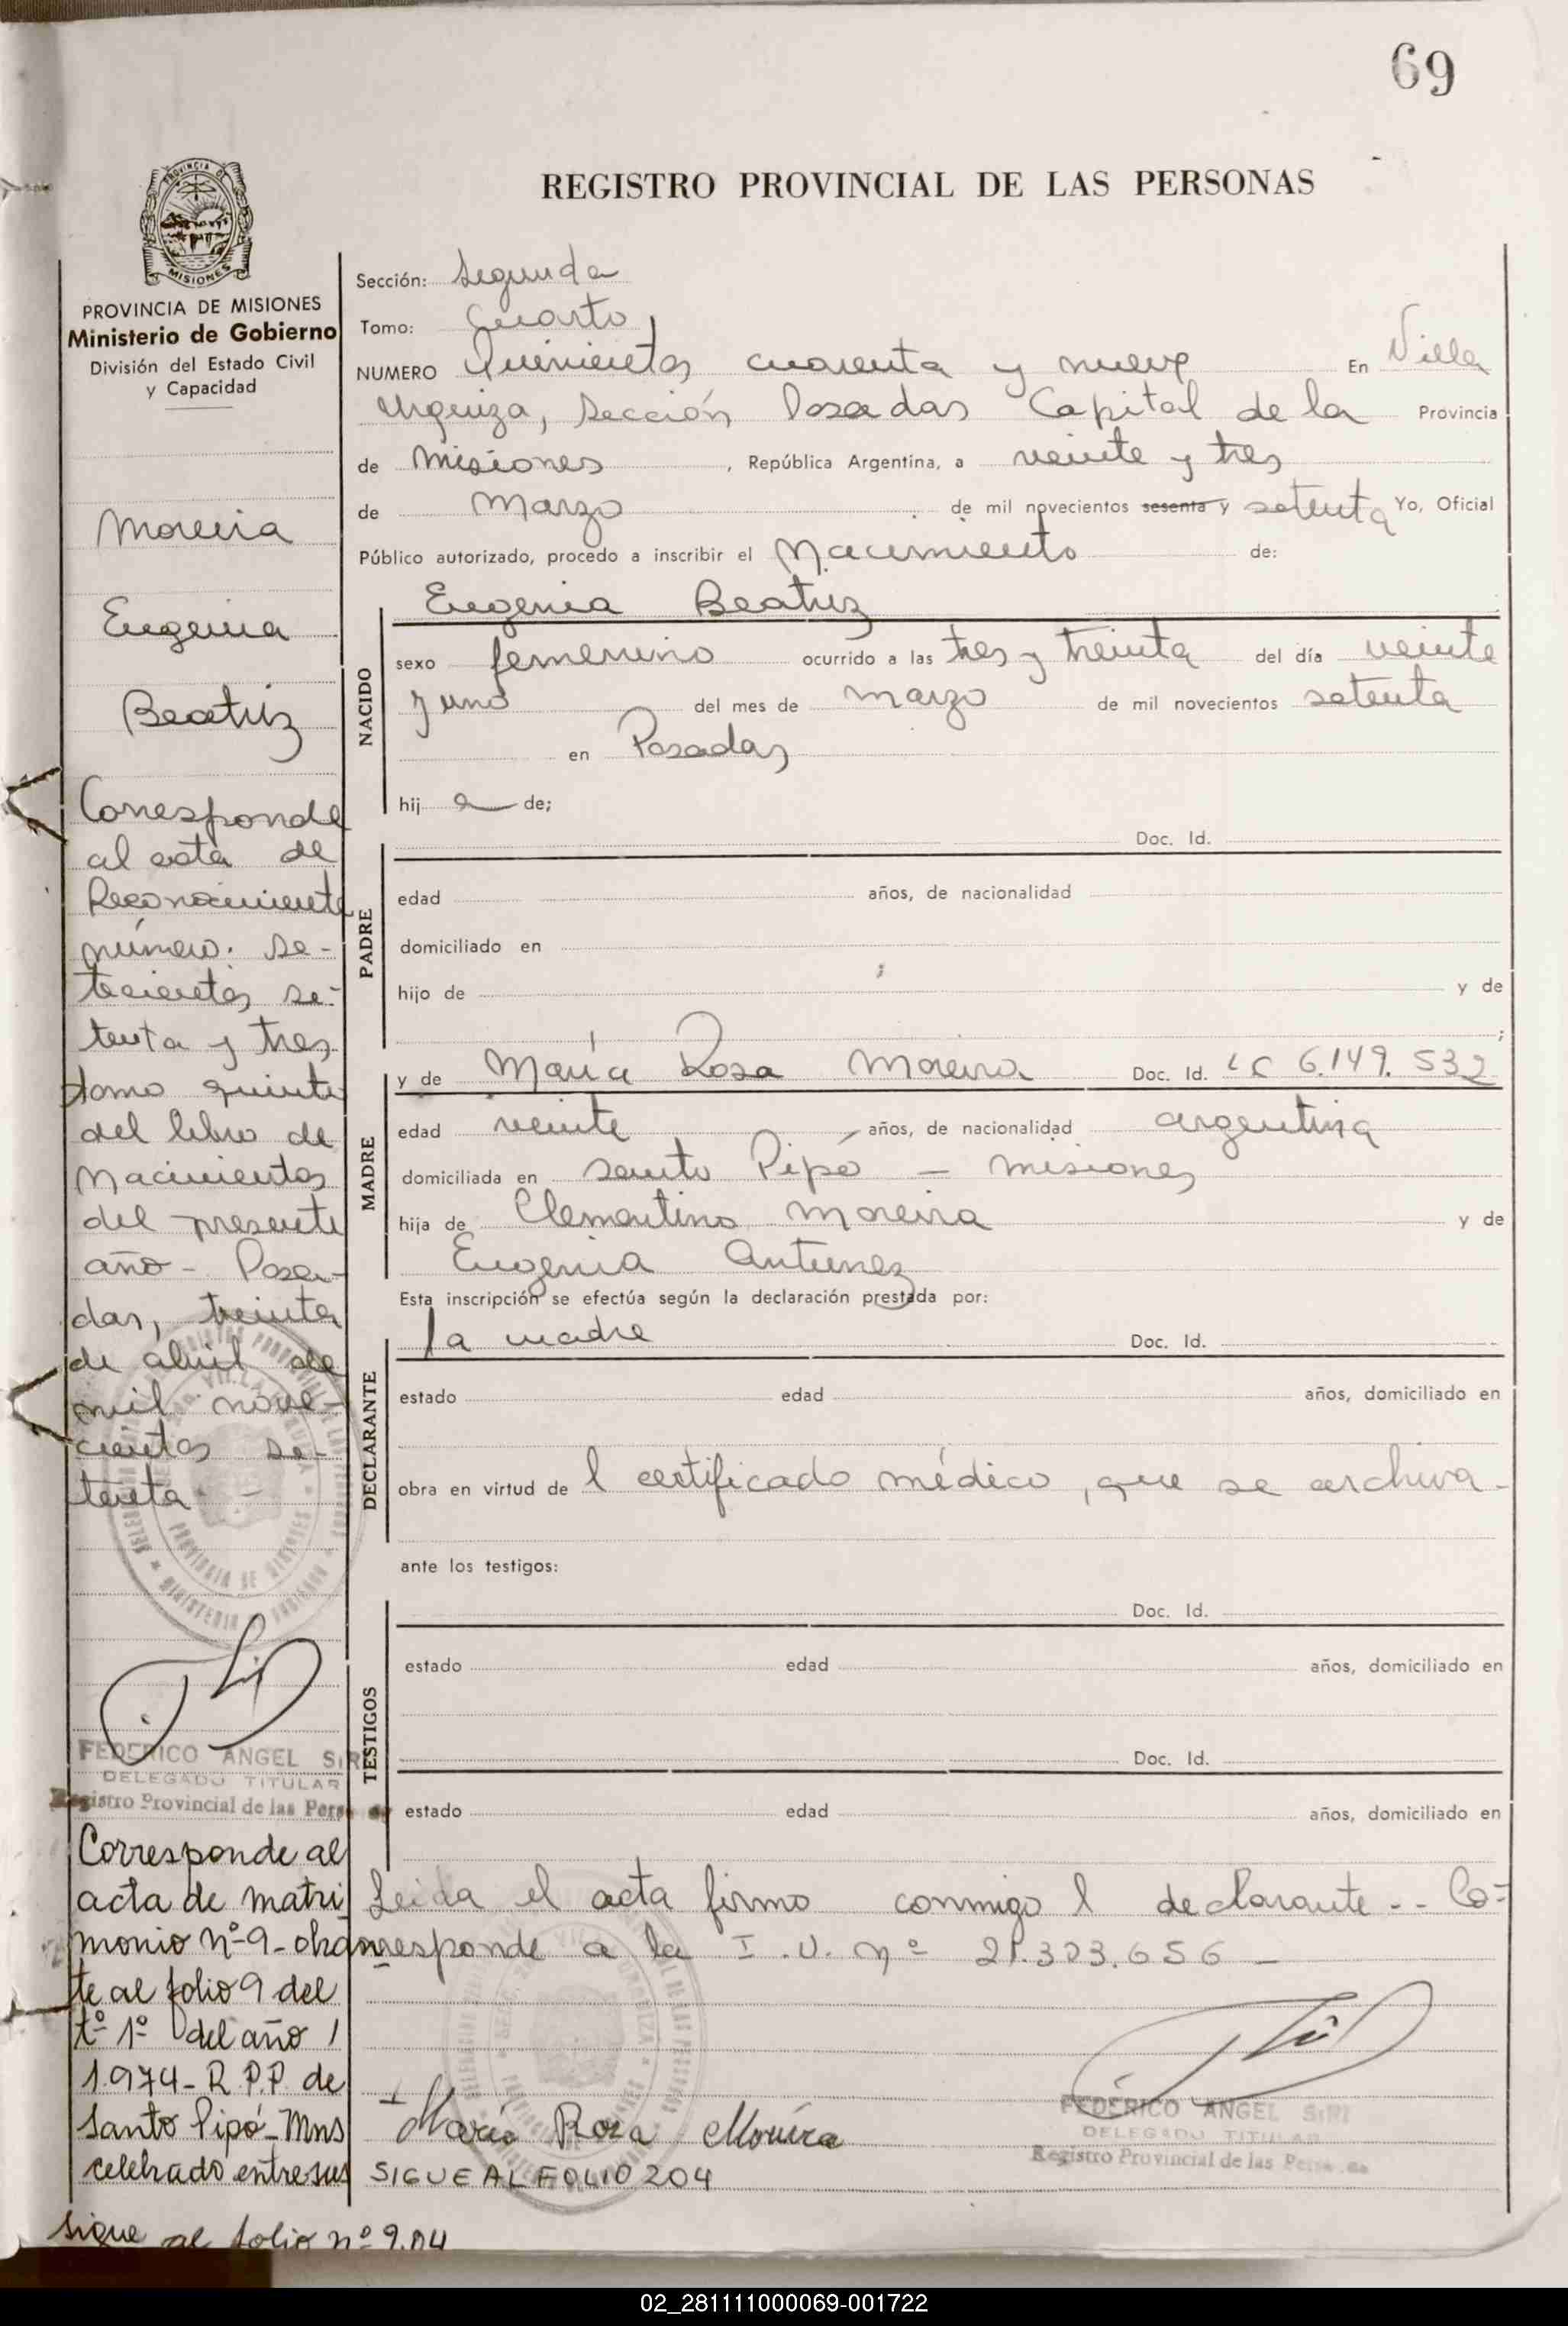 69
REGISTRO PROVINCIAL DE LAS PERSONAS
PROVINCIA DE MISIONES
Ministerio de Gobierno
División del Estado Civil
y Capacidad
Moreira
Eugenia
Beatriz
Corresponde
al acta de
Reconocimiento
número. se-
tecientos se-
tenta y tres
tomo quinto
del libro de
Nacimientos
del presente
año - Posa-
das, treinta
de abril de
mil nove-
cientos se-
tenta -
FEDERICO ANGEL SIRI
DELEGADO TITULAR
Registro Provincial de las Pers
Corresponde al
acta de matri
monio nº 9- obran
te al folio 9 del
tº 1º del año
1.974- R.P.P. de
Santo Pipó- Mns
celebrado entre sus
sigue al folio nº 204
Sección: Segunda
Tomo: Cuarto
NUMERO Quinientos cuarenta y nueve En Villa
Urquiza, Sección Posadas Capital de la Provincia
de Misiones , República Argentina, a veinte y tres
de Marzo de mil novecientos sesenta y setenta Yo, Oficial
Público autorizado, procedo a inscribir el Nacimiento de:
Eugenia Beatriz
NACIDO
sexo femenino ocurrido a las tres y treinta del día veinte
y uno del mes de marzo de mil novecientos setenta
en Posadas
hij a de;
Doc. Id.
PADRE
edad años, de nacionalidad
domiciliado en
hijo de y de
;
y de María Rosa Moreira Doc. Id. LC 6.149.532
MADRE
edad veinte años, de nacionalidad argentina
domiciliada en santo Pipó - misiones
hija de Clementino Moreira y de
Eugenia Antunez
Esta inscripción se efectúa según la declaración prestada por:
la madre Doc. Id.
DECLARANTE
estado edad años, domiciliado en
obra en virtud de l certificado médico, que se archiva-
ante los testigos:
Doc. Id.
TESTIGOS
estado edad años, domiciliado en
Doc. Id.
estado edad años, domiciliado en
Leida el acta firmo conmigo l declarante -- Co-
rresponde a la I.U. nº 21.303.656 -
María Rosa Moreira
FEDERICO ANGEL SIRI
DELEGADO TITULAR
Registro Provincial de las Pers
SIGUE AL FOLIO 204
02_281111000069-001722